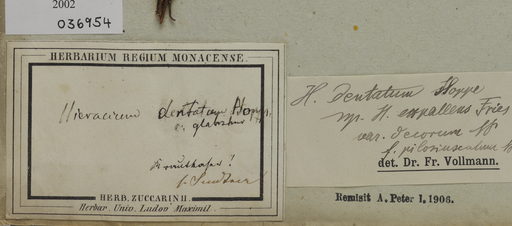 2002
036954
HERBARIUM REGIUM MONACENSE.
Hieracium dentatum Hoppe
glabratum
Krauthofer!
f. Sendtner
HERB. ZUCCARINII.
Herbar. Univ. Ludov. Maximil.
H. dentatum Hoppe
sp. H. expallens Fries
var. decorum
f. pilosiusculum
det. Dr. Fr. Vollmann.
Remisit A. Peter I, 1906.